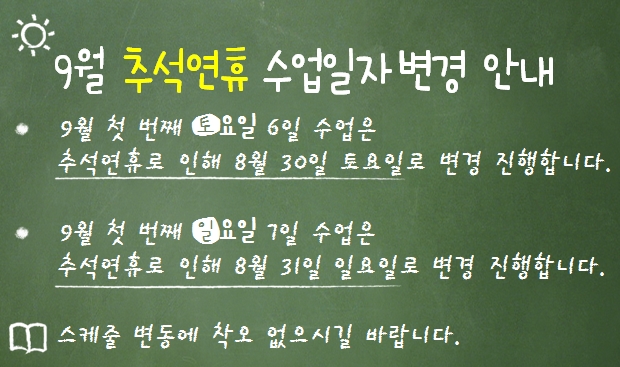 9월 추석연휴 수업일자변경 안내
9월 첫 번째 토요일 6일 수업은
추석연휴로 인해 8월 30일 토요일로 변경 진행합니다.
9월 첫 번째 일요일 7일 수업은
추석연휴로 인해 8월 31일 일요일로 변경 진행합니다.
스케줄 변동에 착오 없으시길 바랍니다.